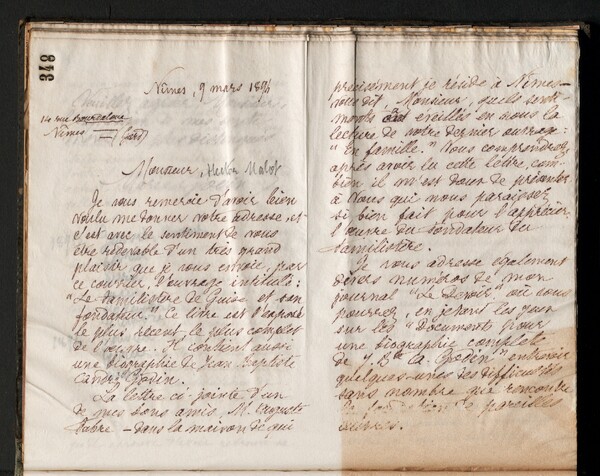 348
Nîmes, 9 mars 1894
14 rue Bourdaloue
Nîmes (Gard)
Monsieur, Hector Malot
Je vous remercie d'avoir bien
voulu me donner votre adresse, et
c'est avec le sentiment de vous
être redevable d'un très grand
plaisir que je vous envoie, par
ce courrier, l'ouvrage intitulé :
"Le Familistère de Guise et son
fondateur". Ce livre est l'exposé
le plus récent, le plus complet
de l'œuvre. Il contient aussi
une biographie de Jean-Baptiste
André Godin.
La lettre ci-jointe d'un
de mes bons amis, M. Auguste
Fabre - dans la maison de qui
précisément je réside à Nîmes -
vous dit, Monsieur, quels senti-
ments a éveillés en nous la
lecture de votre dernier ouvrage :
"En famille". Vous comprendrez,
après avoir lu cette lettre, com-
bien il m'est doux de présenter
à vous qui nous paraissez
si bien fait pour l'apprécier,
l'œuvre du fondateur du
familistère.
Je vous adresse également
divers numéros de mon
journal "Le Devoir" où vous
pourrez, en jetant les yeux
sur les "Documents pour
une biographie complète
de J. Bte A. Godin" entrevoir
quelques-unes des difficultés
sans nombre que rencontre
de pareilles
œuvres.